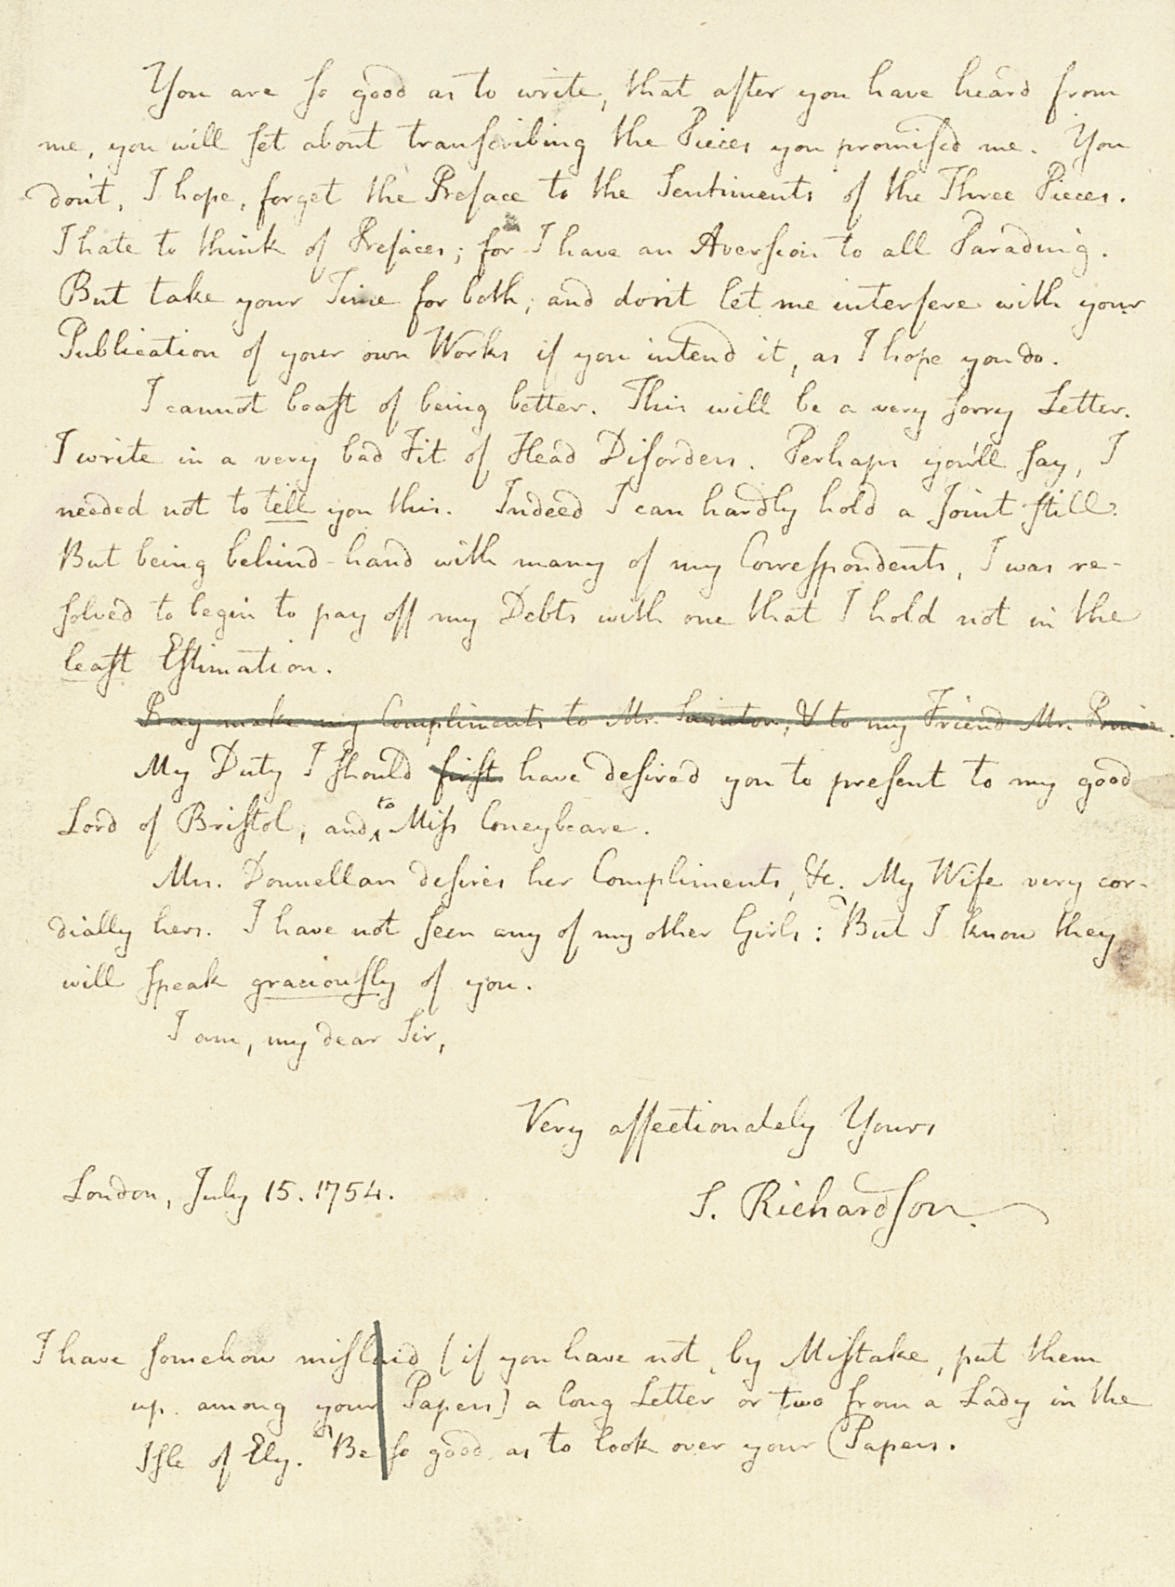 You are ſo good as to write, that after you have heard from
me, you will ſet about tranſcribing the Pieces you promiſed me. You
don't, I hope, forget the Preface to the Sentiments of the Three Pieces.
I hate to think of Prefaces; for I have an Averſion to all Parading.
But take your Time for both; and don't let me interfere with your
Publication of your own Works if you intend it, as I hope you do.
I cannot boaſt of being better. This will be a very ſorry Letter.
I write in a very bad Fit of Head Diſorders. Perhaps you'll ſay, I
needed not to tell you this. Indeed I can hardly hold a Joint ſtill.
But being behind-hand with many of my Correſpondents, I was re-
ſolved to begin to pay off my Debts with one that I hold not in the
leaſt Eſtimation.
Pray make my Compliments to Mr. Swinton, & to my Friend Mr. Prince.
My Duty I ſhould firſt have deſired you to preſent to my good
Lord of Briſtol, and to Miſs Coneybeare.
Mrs. Donnellan deſires her Compliments, &c. My Wife very cor-
dially hers. I have not ſeen any of my other Girls: But I know they
will ſpeak graciouſly of you.
I am, my dear Sir,
Very affectionately Yours
London, July 15. 1754.
S. Richardſon.
I have ſomehow miſlaid (if you have not, by Miſtake, put them
up among your Papers) a long Letter or two from a Lady in the
Iſle of Ely. Be ſo good as to look over your Papers.